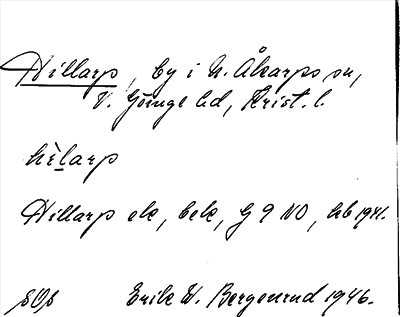 Hillarp, by i N. Åkarps sn,
V. Göinge hd, Krist. l.
hìlarp
Hillarp ek, bek, G 9 NO, hb 1941.
Erik W. Bergenrud 1946.